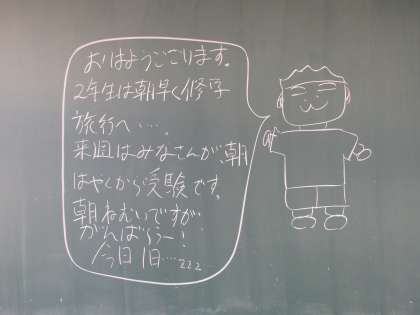 おはようございます。
2年生は朝早く修学
旅行へ‥‥。
来週はみなさんが、朝
はやくから受験です。
朝ねむいですが
がんばろうー！
今日1日‥‥zzz